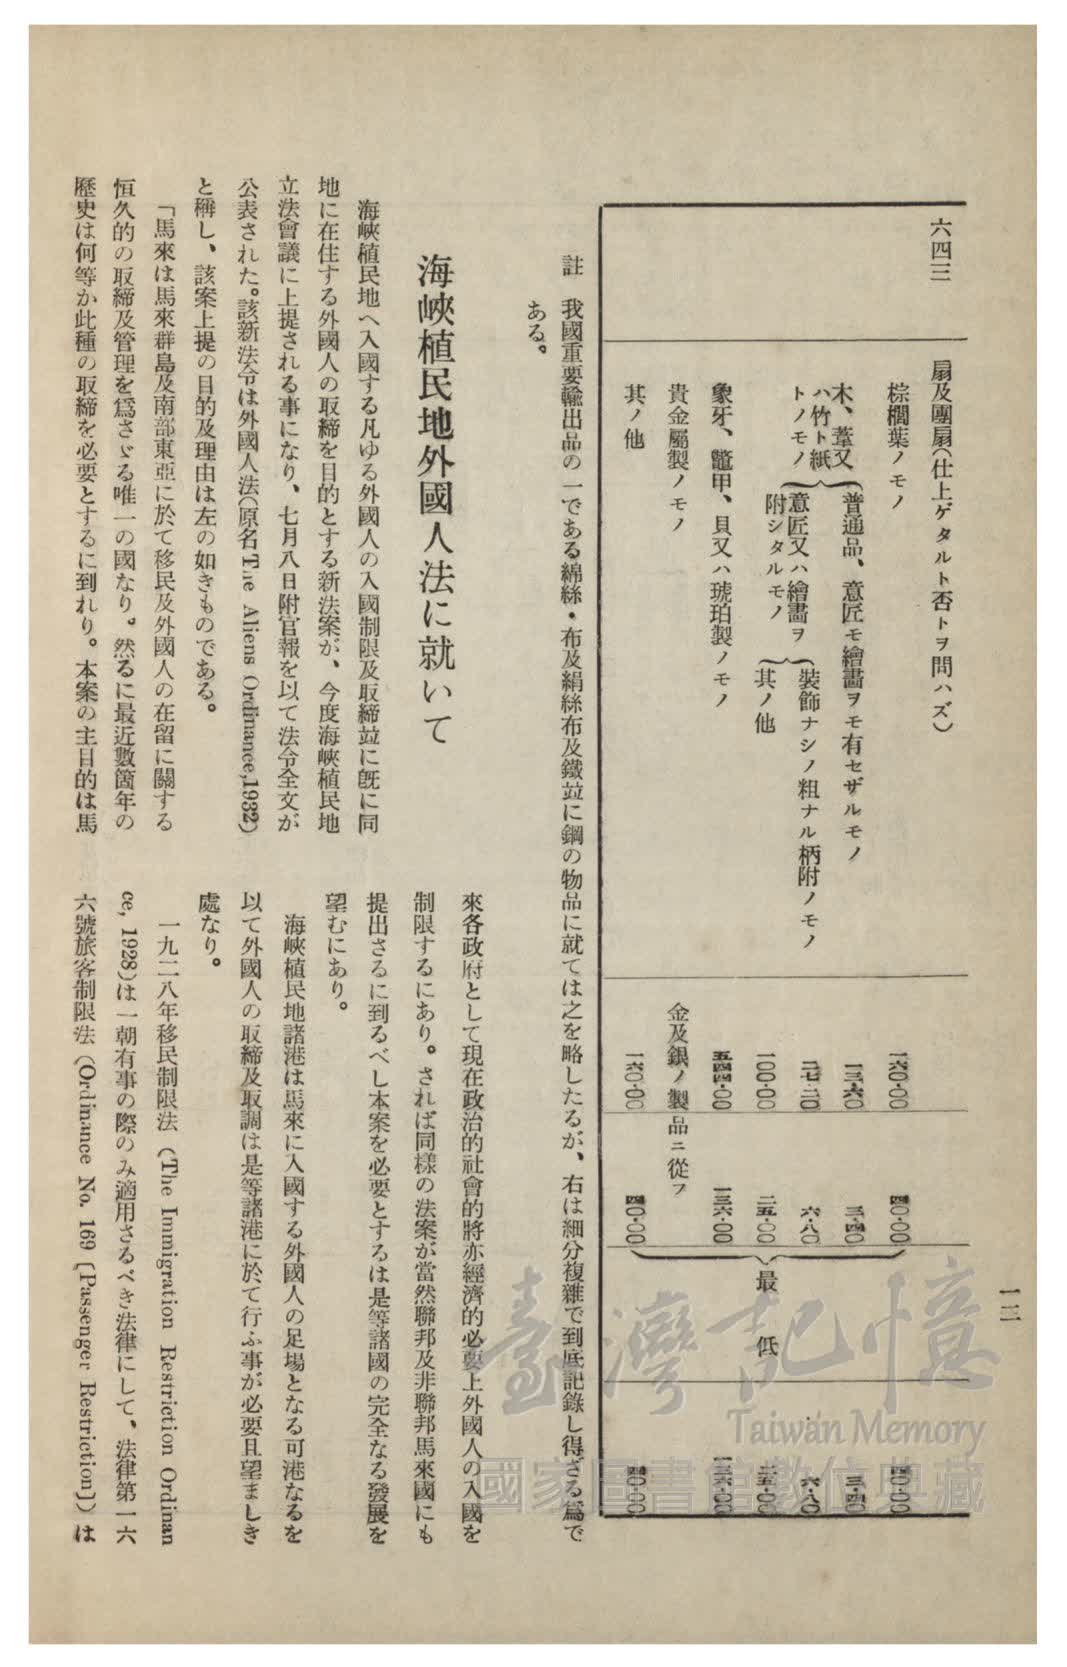 一二
六四三
扇及團扇(仕上ゲタルト否トヲ問ハズ)
棕櫚葉ノモノ
一六〇・〇〇
四〇・〇〇
四〇・〇〇
木、葦又
ハ竹ト紙
トノモノ
普通品、意匠モ繪畵ヲモ有セザルモノ
一三・六〇
三・四〇
三・四〇
意匠又ハ繪畵ヲ
附シタルモノ
裝飾ナシノ粗ナル柄附ノモノ
二七・二〇
六・八〇
六・八〇
其ノ他
一〇〇・〇〇
二五・〇〇
二五・〇〇
最低
象牙、鼈甲、貝又ハ琥珀製ノモノ
五四四・〇〇
一三六・〇〇
一三六・〇〇
貴金屬製ノモノ
金及銀ノ製品ニ從フ
其ノ他
一六〇・〇〇
四〇・〇〇
四〇・〇〇
註 我國重要輸出品の一である綿絲・布及絹絲布及鐵竝に鋼の物品に就ては之を略したるが、右は細分複雜で到底記錄し得ざる爲で
ある。
海峽植民地外國人法に就いて
海峽植民地へ入國する凡ゆる外國人の入國制限及取締竝に旣に同
地に在住する外國人の取締を目的とする新法案が、今度海峽植民地
立法會議に上提される事になり、七月八日附官報を以て法令全文が
公表された。該新法令は外國人法(原名The Aliens Ordinance,1932)
と稱し、該案上提の目的及理由は左の如きものである。
「馬來は馬來群島及南部東亞に於て移民及外國人の在留に關する
恒久的の取締及管理を爲さゞる唯一の國なり。然るに最近數箇年の
歷史は何等か此種の取締を必要とするに到れり。本案の主目的は馬
來各政府として現在政治的社會的將亦經濟的必要上外國人の入國を
制限するにあり。されば同樣の法案が當然聯邦及非聯邦馬來國にも
提出さるに到るべし本案を必要とするは是等諸國の完全なる發展を
望むにあり。
海峽植民地諸港は馬來に入國する外國人の足場となる可港なるを
以て外國人の取締及取調は是等諸港に於て行ふ事が必要且望ましき
處なり。
一九二八年移民制限法 (The Immigration Restriction Ordinan
ce, 1928)は一朝有事の際のみ適用さるべき法律にして、法律第一六
六號旅客制限法 (Ordinance No. 169 〔Passenger Restriction〕) は
臺灣記憶
Taiwan Memory
國家圖書館數位典藏